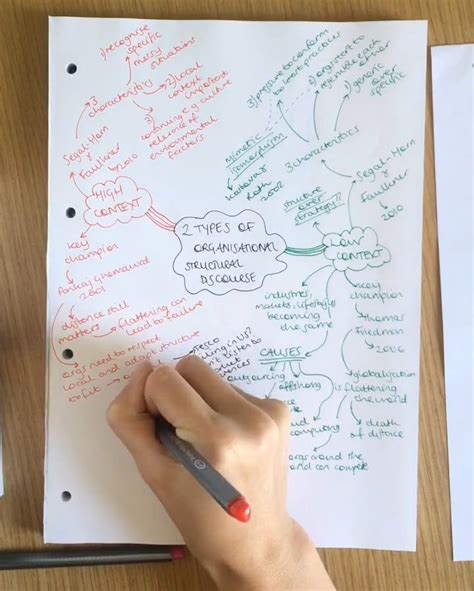 1) recognise
specific
messy
situations
3
characteristics
2) local
context
important
3)
continuing e.g culture
relevance of
environmental
factors
Segal-Horn
&
Faulkner
2010
HIGH
CONTEXT
key
champion
Pankaj Ghemawat
2001
distance still
matters
flattening can
lead to failure
orgs need to respect
local and adapt structure
to fit
Tesco
in US?
listen to
2 TYPES OF
ORGANISATIONAL
STRUCTURAL
DISCOURSE
3) pressure to conform
to best practices
2) orgs start to
resemble each
other
1) generic
over
specific
Mimetic
isomorphism
Kostova &
Roth
2002
3 characteristics
Segal-Horn
&
Faulkner
2010
structure
over
strategy??
LOW
CONTEXT
industries,
markets, lifestyles
becoming
the same
key
champion
Thomas
Friedman
2006
globalisation
is flattening
the world
death
of distance
CAUSES
outsourcing
offshoring
computing
orgs around the
world can compete